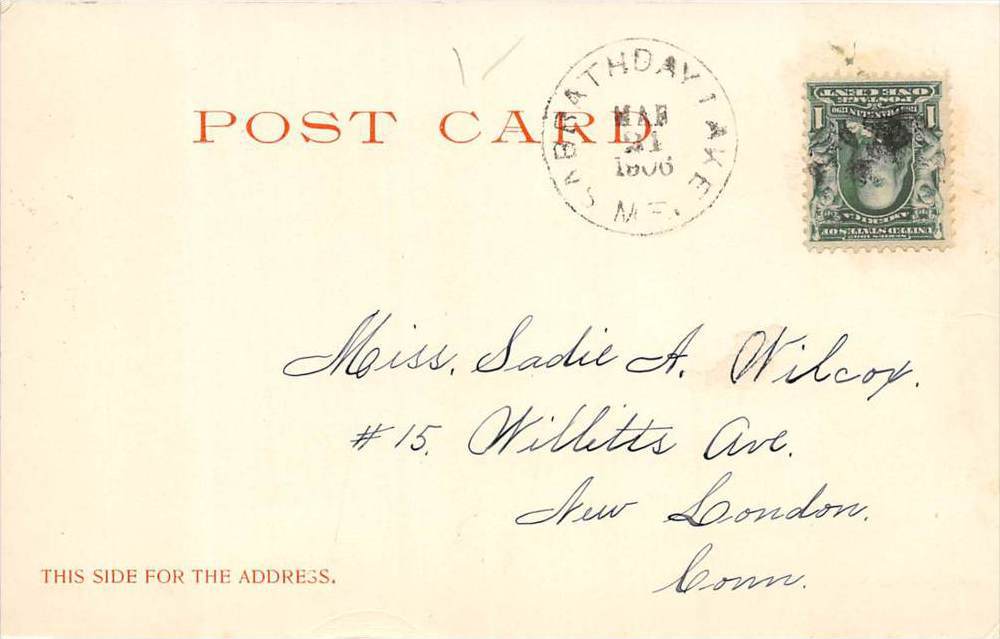 POST CARD
SABBATHDAY LAKE
MAR
21
1906
ME.
1 ONE CENT 1
POSTAGE
FRANKLIN
UNITED STATES OF
AMERICA
Miss. Sadie A. Wilcox.
#15. Willitts Ave.
New London.
Conn.
THIS SIDE FOR THE ADDRESS.